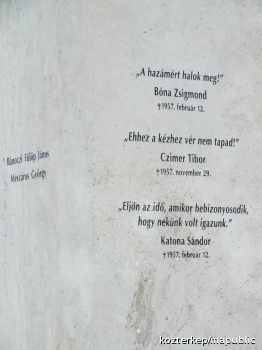 „A hazámért halok meg!”
Bóna Zsigmond
†1957. február 12.
„Ehhez a kézhez vér nem tapad!”
Czimer Tibor
†1957. november 29.
„Eljön az idő, amikor bebizonyosodik,
hogy nekünk volt igazunk.”
Katona Sándor
†1957. február 12.
Ránoczi Fülöp János
Mészáros György
kozterkep/mapublic